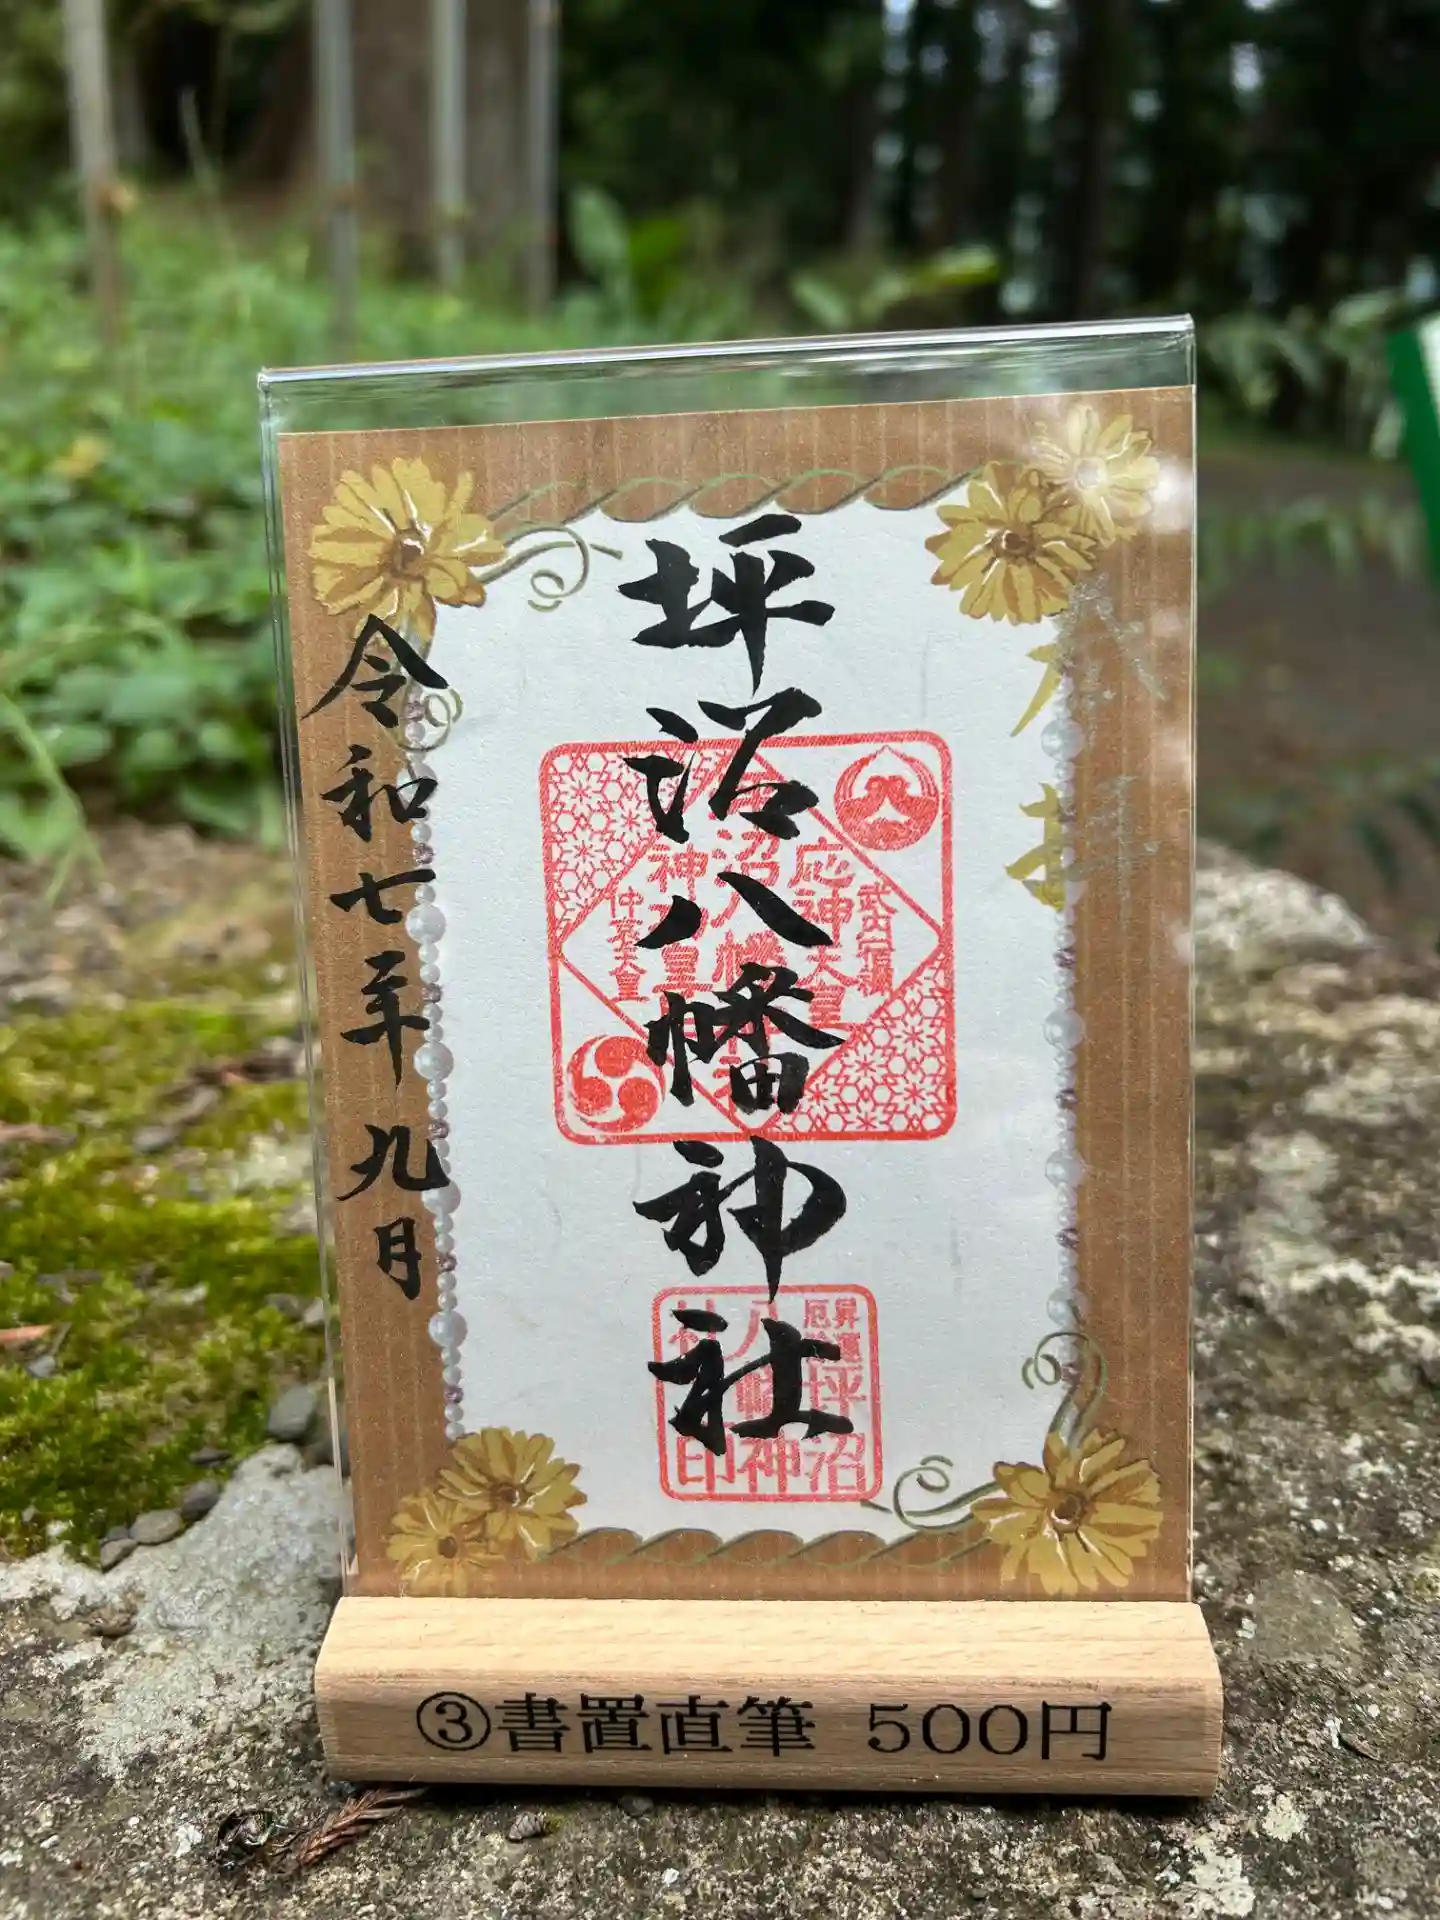 奉拝
坪沼八幡神社
令和七年九月
武内宿禰
応神天皇
坪沼八幡神社
神功皇后
仲哀天皇
昇運
厄除
坪沼
八幡神
社印
③書置直筆 500円